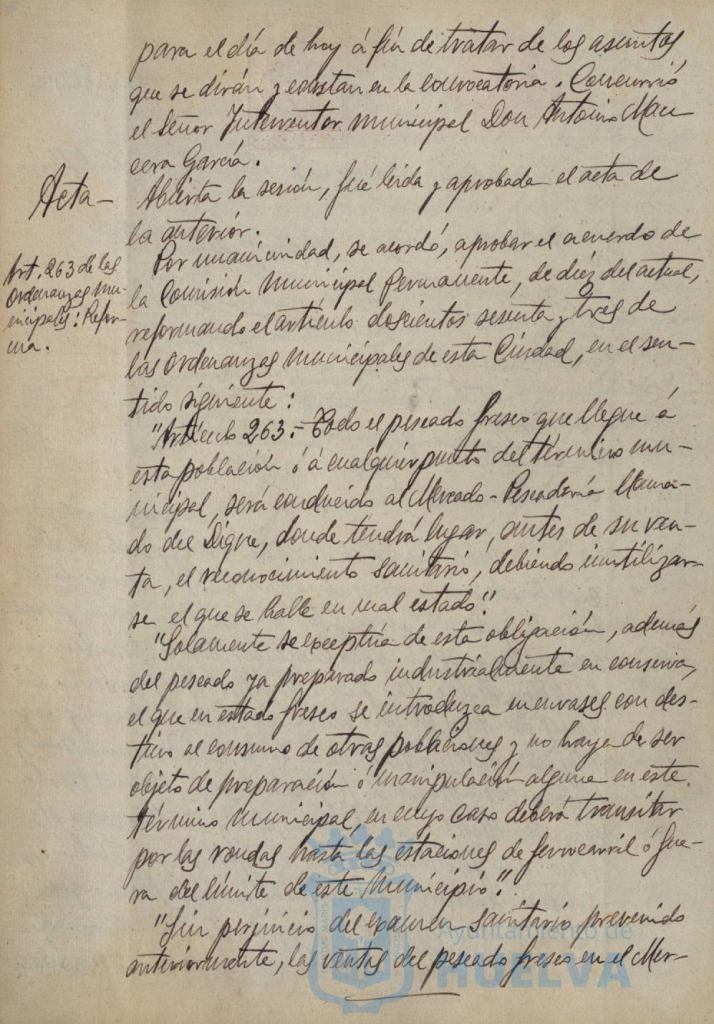 para el día de hoy á fin de tratar de los asuntos,
que se dirán y constan en la convocatoria. Concurrió
el Señor Interventor municipal Don Antonio Man
cera García.
Acta-
Abierta la sesión, fué leida y aprobada el acta de
la anterior.
Art. 263 de las
Ordenanzas mu-
nicipales: Refor-
ma.
Por unanimidad, se acordó, aprobar el acuerdo de
la Comisión Municipal Permanente, de diez del actual,
reformando el artículo doscientos sesenta y tres de
las Ordenanzas municipales de esta Ciudad, en el sen-
tido siguiente:
"Artículo 263.- Todo el pescado fresco que llegue á
esta población ó á cualquier punto del término mu-
nicipal, será conducido al Mercado-Pescadería llama-
do del Dique, donde tendrá lugar, antes de su ven-
ta, el reconocimiento sanitario, debiendo inutilizar-
se el que se halle en mal estado".
"Solamente se exceptúa de esta obligación, además
del pescado ya preparado industrialmente en conserva,
el que en estado fresco se introduzca en envases con des-
tino al consumo de otras poblaciones y no haya de ser
objeto de preparación ó manipulación alguna en este
término municipal, en cuyo caso deberá transitar
por las rondas hasta las estaciones de ferrocarril ó fue-
ra del límite de este Municipio".
"Sin perjuicio del examen sanitario prevenido
anteriormente, las ventas del pescado fresco en el Mer-
Ayuntamiento de
HUELVA